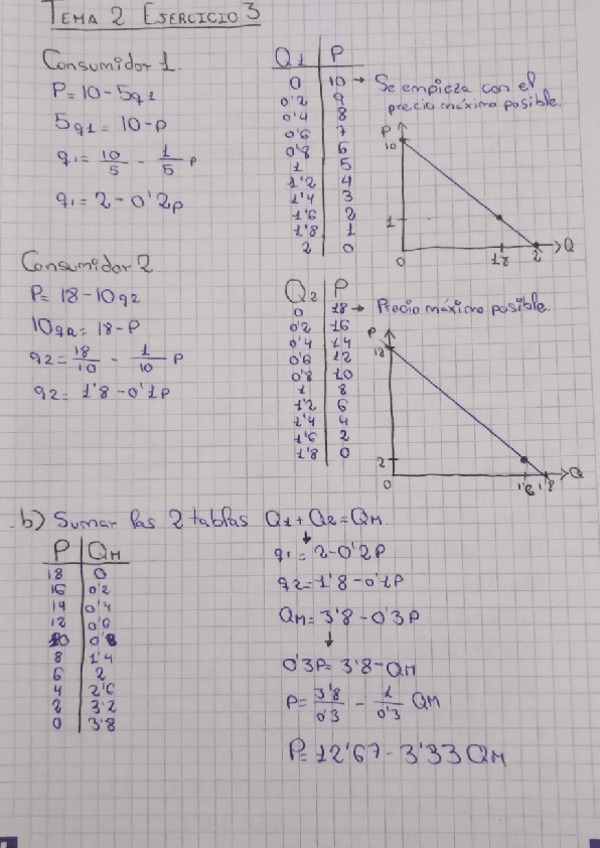 TEMA 2 EJERCICIO 3
Consumidor 1.
P = 10 - 5q1
5q1 = 10 - P
q1 = 10/5 - 1/5 P
q1 = 2 - 0'2p
Q1 | P
0 | 10 → Se empieza con el
precio máximo posible.
0'2 | 9
0'4 | 8
0'6 | 7
0'8 | 6
1 | 5
1'2 | 4
1'4 | 3
1'6 | 2
1'8 | 1
2 | 0
P
10
1
0
1'8
2
Q
Consumidor 2
P = 18 - 10q2
10q2 = 18 - P
q2 = 18/10 - 1/10 P
q2 = 1'8 - 0'1p
Q2 | P
0 | 18 → Precio máximo posible.
0'2 | 16
0'4 | 14
0'6 | 12
0'8 | 10
1 | 8
1'2 | 6
1'4 | 4
1'6 | 2
1'8 | 0
P
18
2
0
1'6
1'8
Q
b) Sumar las 2 tablas Q1 + Q2 = QM
P | QM
18 | 0
16 | 0'2
14 | 0'4
12 | 0'6
10 | 0'8
8 | 1'4
6 | 2
4 | 2'6
2 | 3'2
0 | 3'8
↓
q1 = 2 - 0'2P
q2 = 1'8 - 0'1P
QM = 3'8 - 0'3P
↓
0'3P = 3'8 - QM
P = 3'8/0'3 - 1/0'3 QM
P = 12'67 - 3'33QM